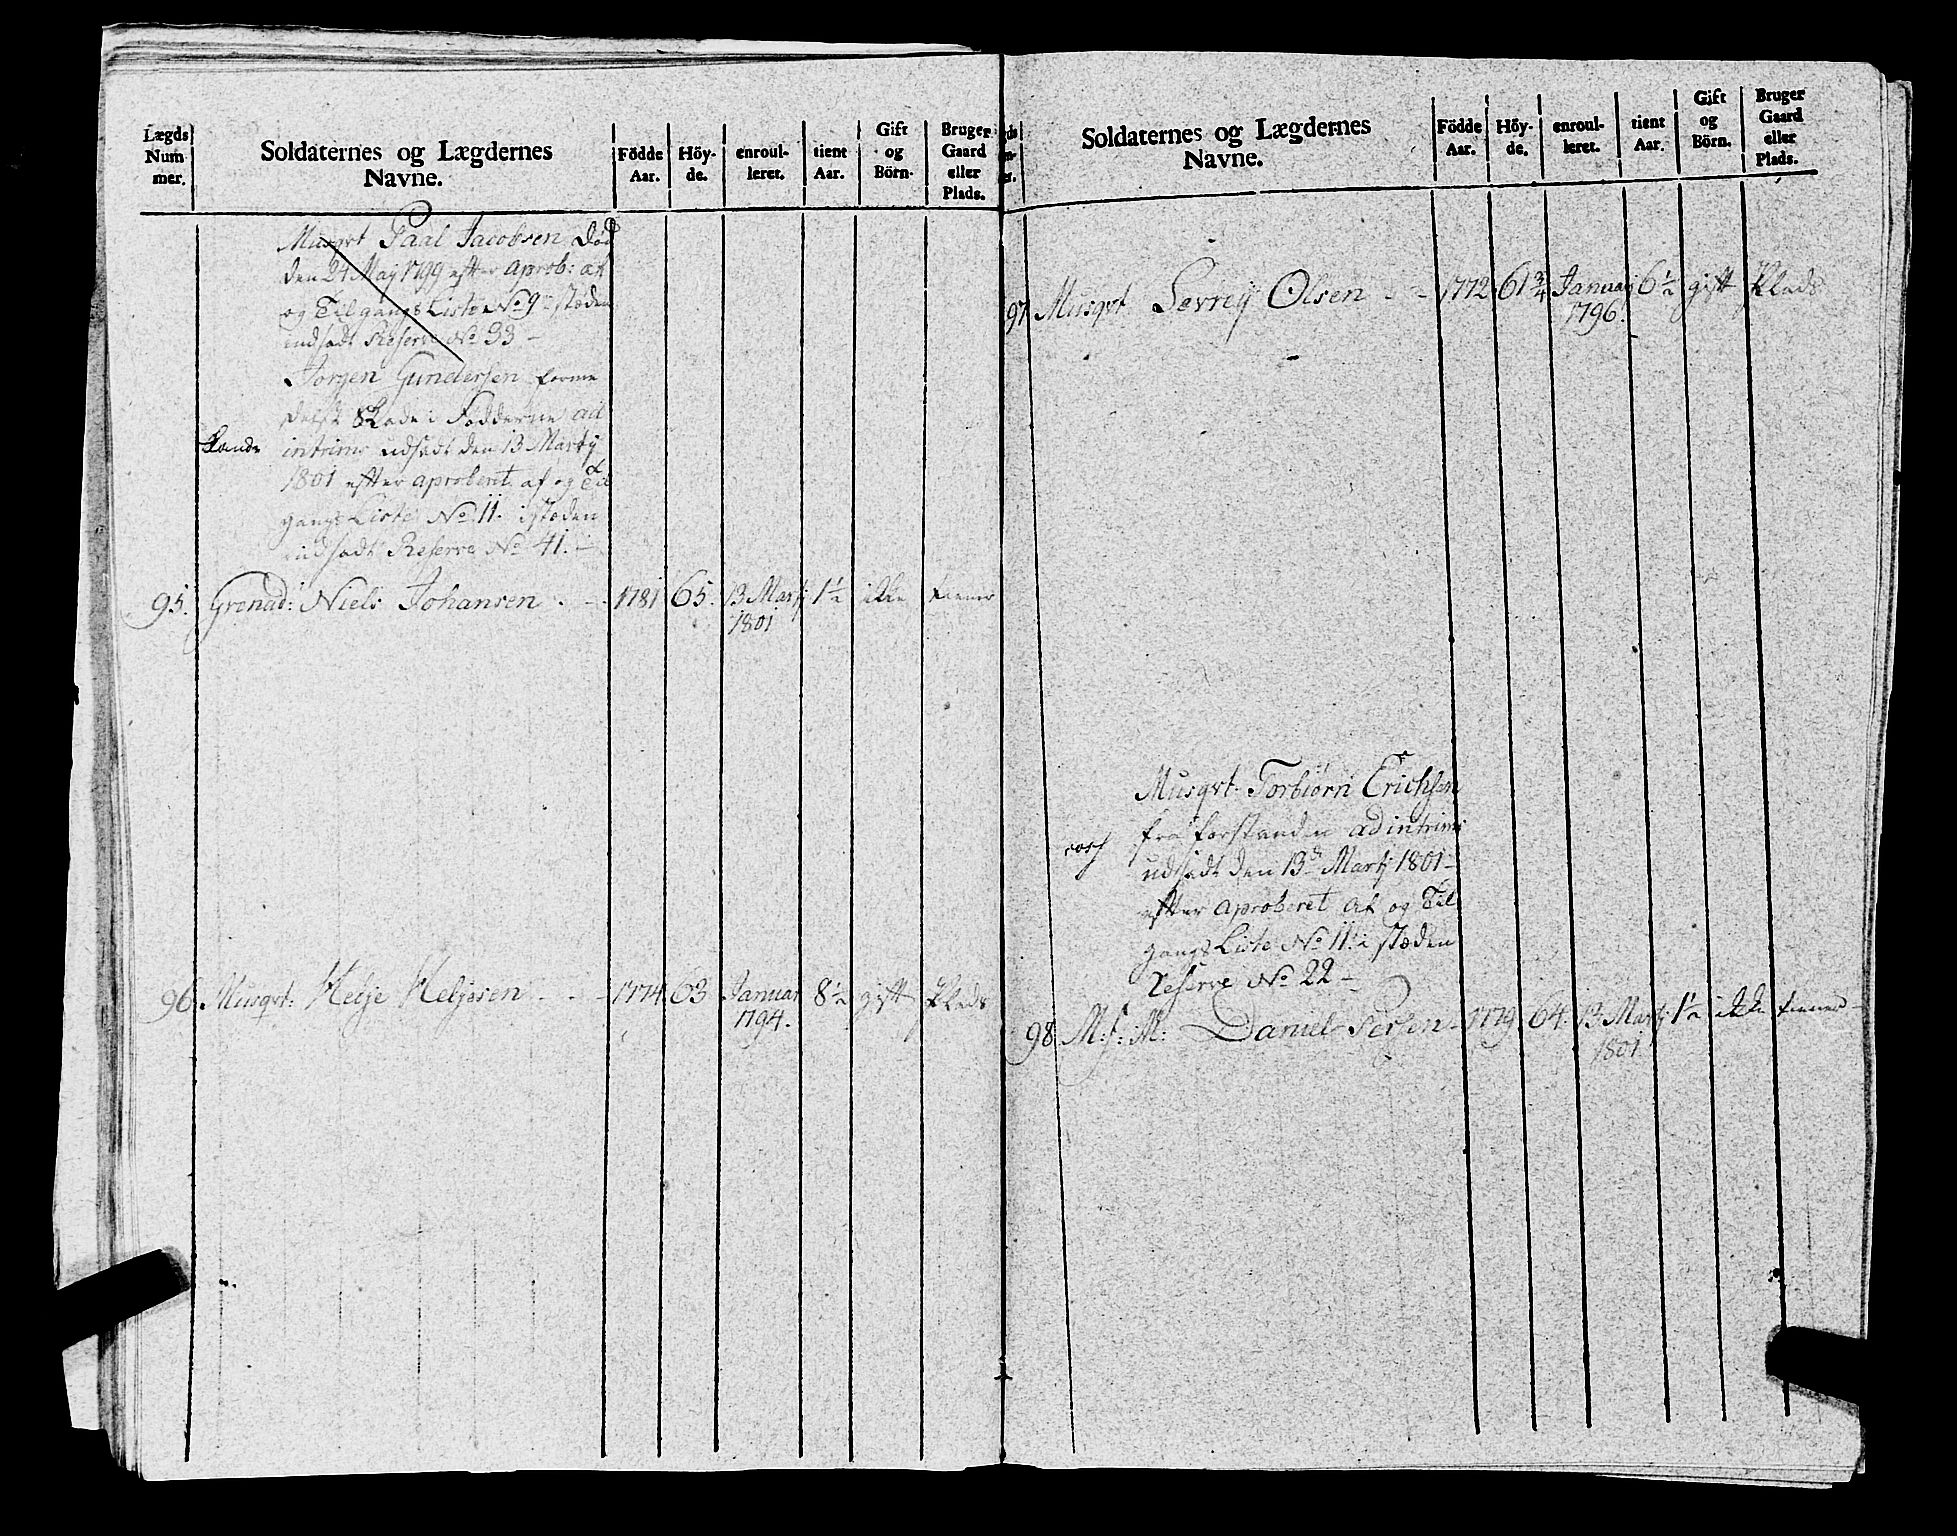 Lægds Num mer.
Soldaternes og Lægdernes Navne.
Födde Aar.
Höy- de.
enroul- leret.
tient Aar.
Gift og Börn.
Bruger Gaard eller Plads.
Musqvt Paal Jacobsen død
den 24 Maij 1799 efter aprob: af
og Tilgangs Liste No 9 i stæden
indsadt Reserve No 33 –
Jorgen Gundersen forme
delst Skade i Fødderne ad
intrims udsadt den 13 Martij
1801 efter aproberet af og Til
gangs Liste No 11. i stæden
indsadt Reserve No 41. –
95. Grenad: Niels Johansen . – . 1781 65. 13 Martj 1½ ikke tiener
1801
96 Musqvt: Helje Heljesen . . – 1774 63 Januar 8½ gift Plads
1794.
Soldaternes og Lægdernes Navne.
Födde Aar.
Höy- de.
enroul- leret.
tient Aar.
Gift og Börn.
Bruger Gaard eller Plads.
97 Musqvt Sevrej Olsen . – 1772 61¾ Januarj 6½ gift Plads
1796.
Musqvt. Torbiørn Erichsen
fra forstanden ad intrims
udsadt den 13de Martj 1801 –
efter aproberet af og Til
gangs Liste No 11. i stæden
Reserve No 22 –
98 M: f: M: Daniel Persen – 1779 64. 13 Martj 1½ ikke tiener –
1801